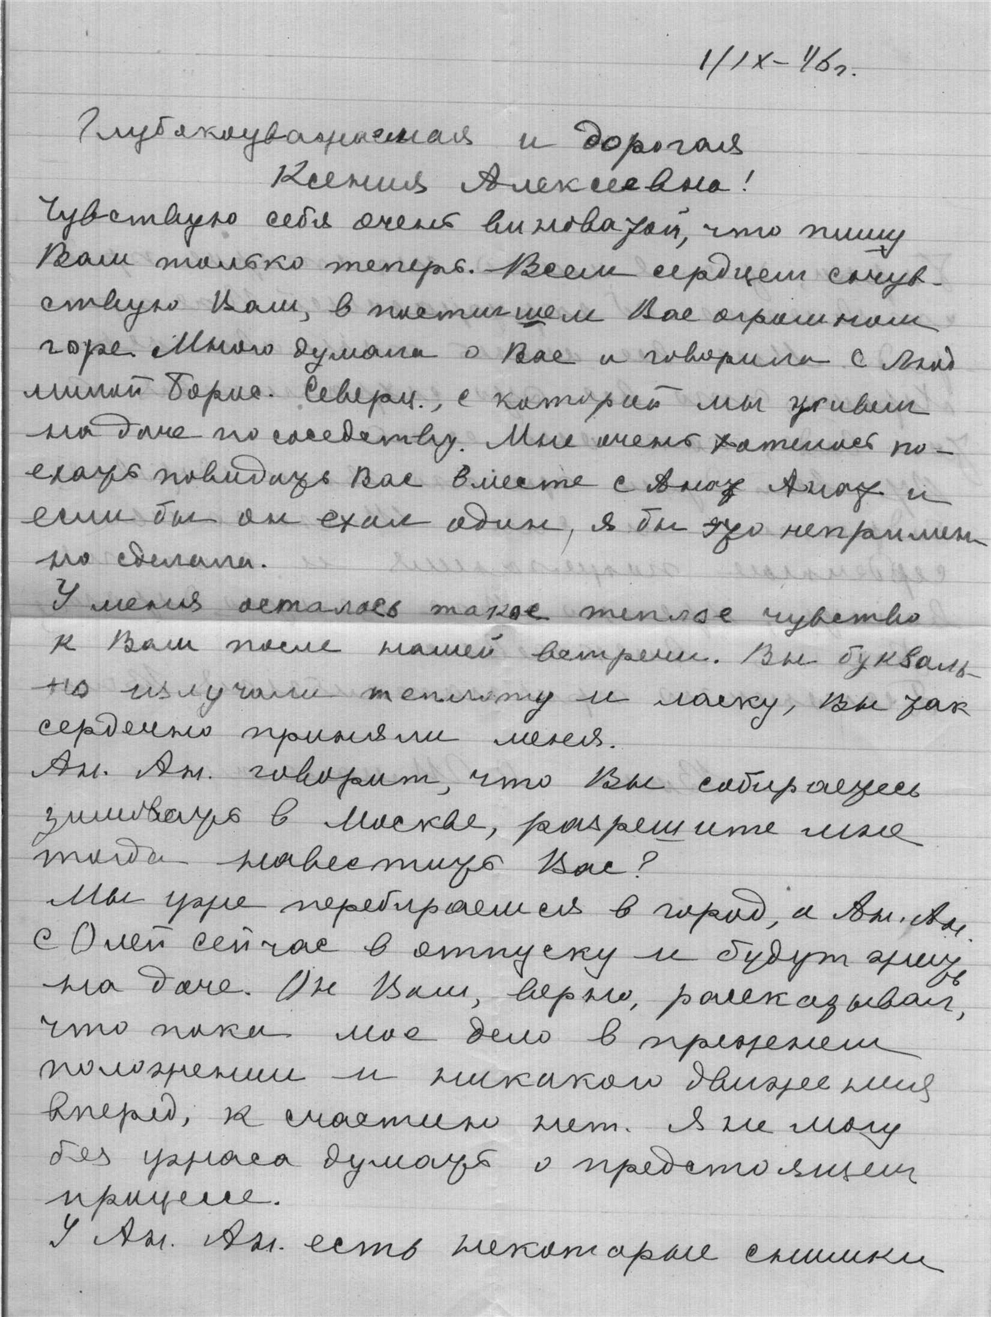 1/IX–46г.
Глубокоуважаемая и дорогая
Ксения Алексеевна!
Чувствую себя очень виноватой, что пишу
Вам только теперь. Всем сердцем сочув-
ствую Вам, в постигшем Вас огромном
горе. Много думала о Вас и говорила с Люд
милой Борис. Северц., с которой мы живем
на даче по соседству. Мне очень хотелось по-
ехать повидать Вас вместе с Анат Анат и
если бы он ехал один, я бы это непримен-
но сделала.
У меня осталось такое теплое чувство
к Вам после нашей встречи. Вы букваль-
но излучали теплоту и ласку, Вы так
сердечно приняли меня.
Ан. Ан. говорит, что Вы собираетесь
зимовать в Москве, разрешите мне
тогда навестить Вас?
Мы уже перебираемся в город, а Ан. Ан.
с Олей сейчас в отпуску и будут жить
на даче. Он Вам, верно, рассказывал,
что пока мое дело в прежнем
положении и никакого движения
вперед, к счастью нет. Я не могу
без ужаса думать о предстоящем
процессе.
У Ан. Ан. есть некоторые снимки